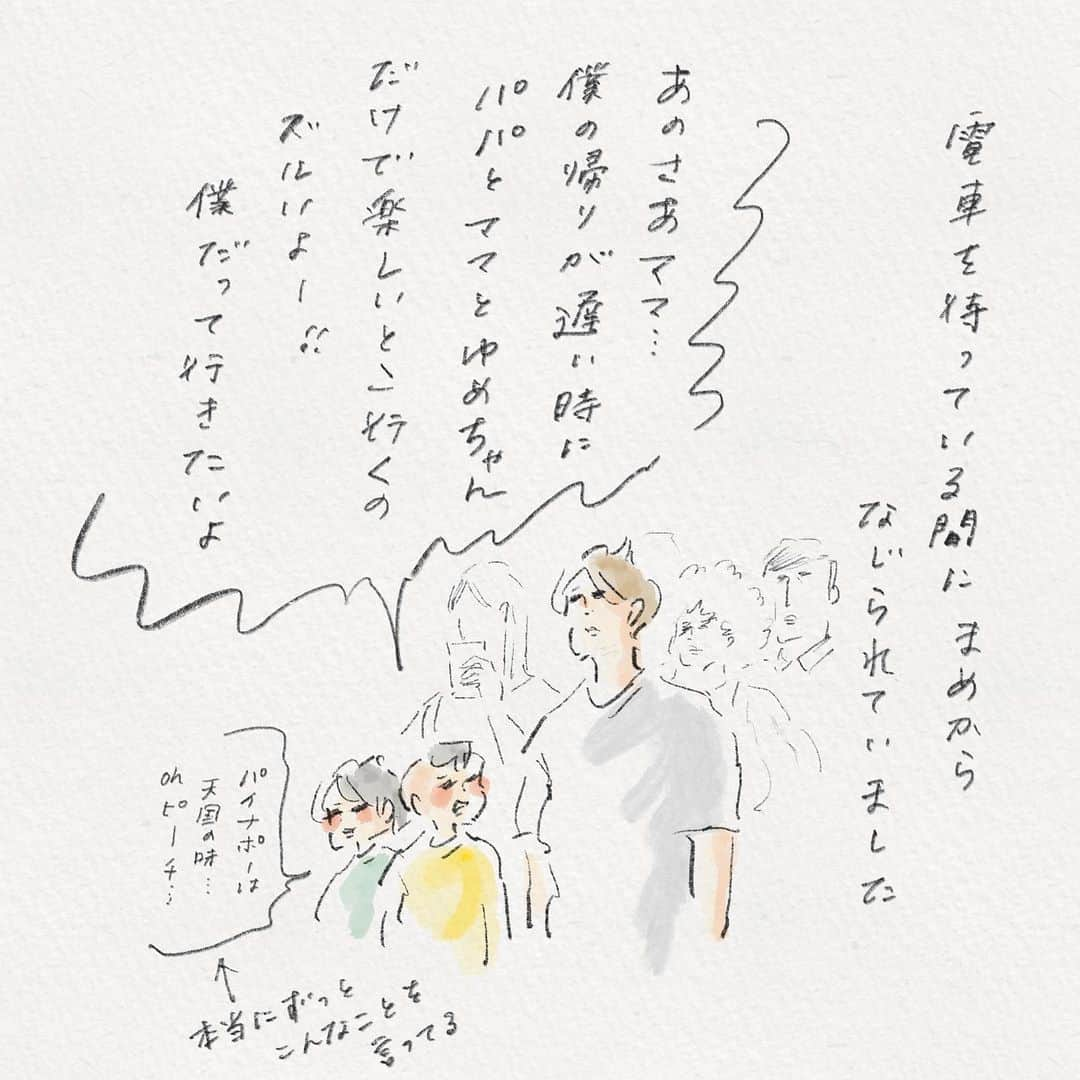 電車を待っている間にまめから
なじられていました
あのさあママ…
僕の帰りが遅い時に
パパとママとゆめちゃん
だけで楽しいとこ行くの
ズルいよー!!
僕だって行きたいよ
パイナポーは
天国の味…
ohピーチ…
本当にずっと
こんなことを
言ってる